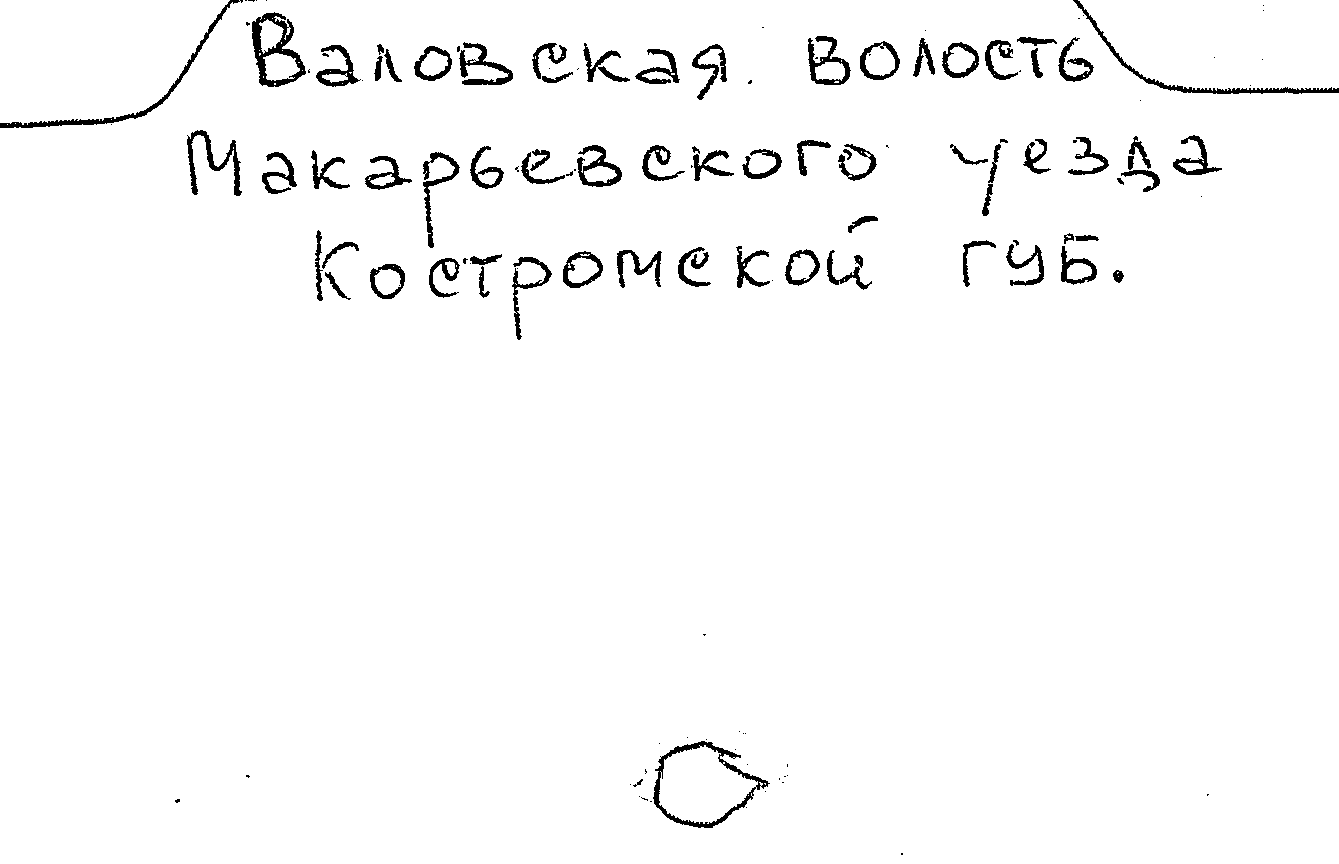 Валовская волость
Макарьевского уезда
Костромской губ.